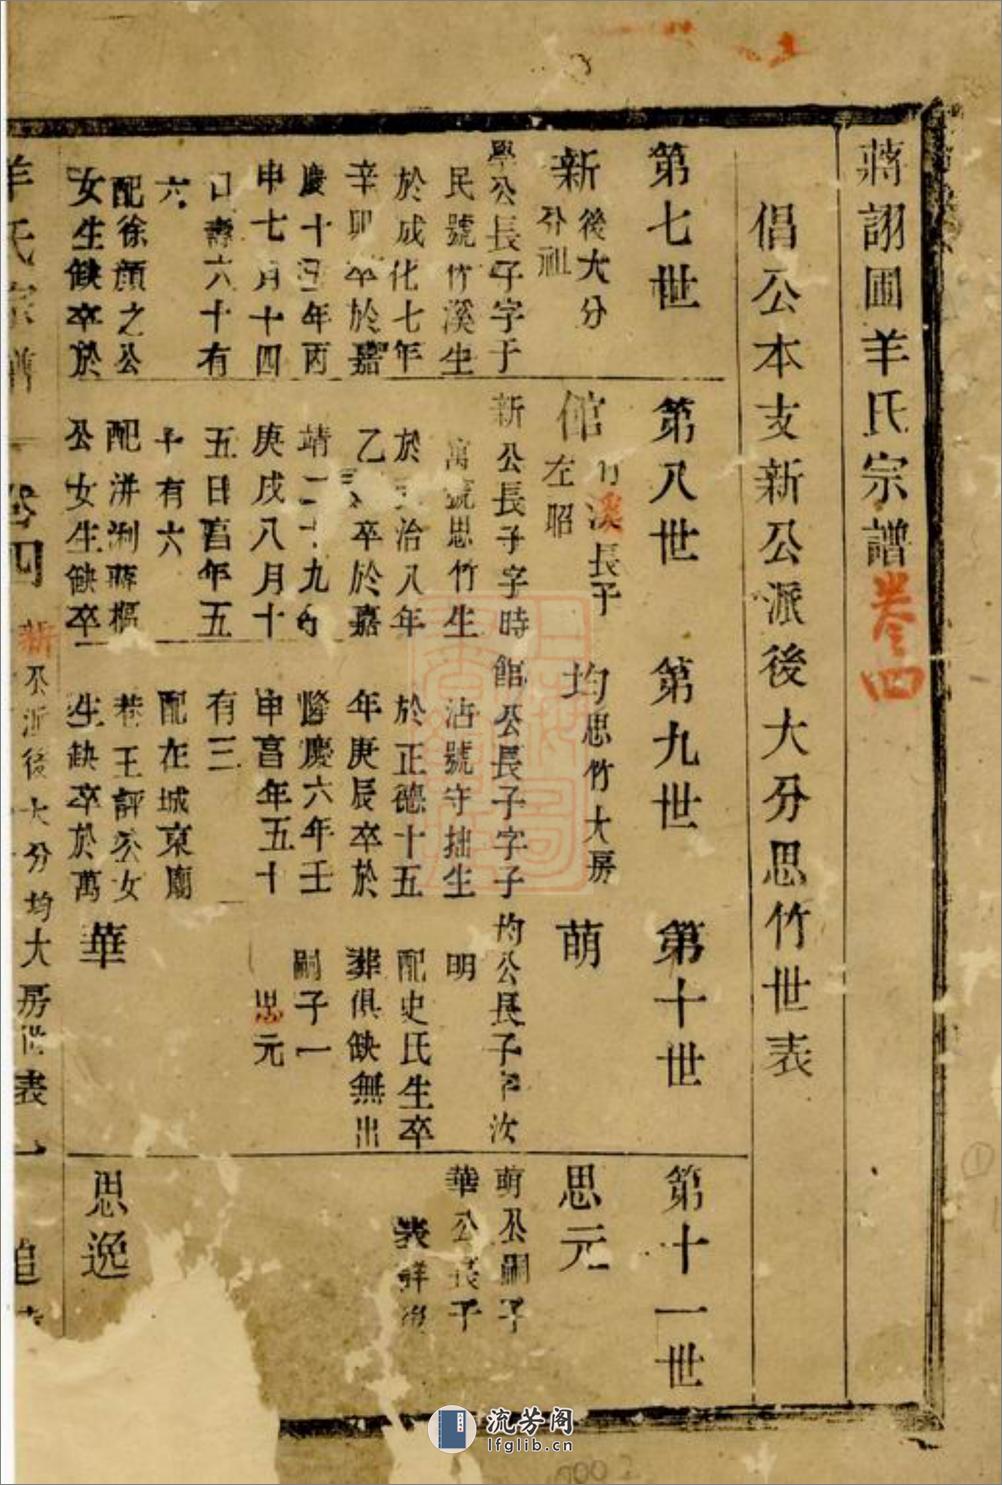 蔣詡圃羊氏宗譜卷四
倡公本支新公派後大分思竹世表
第七世
新 後大分分祖
學公長子字于
民號竹溪生
於成化七年
辛卯卒於嘉
慶十五年丙
申七月十四
日壽六十有
六
配徐顔之公
女生缺卒於
第八世
倌 竹溪長子左昭
新公長子字時
萬號思竹生
於治八年
乙卯卒於嘉
靖二十九年
庚戌八月十
五日享年五
十有六
配洴浰蔣樞
公女生缺卒
第九世
均 思竹大房
館公長子字子
沾號守拙生
於正德十五
年庚辰卒於
隆慶六年壬
申享年五十
有三
配在城東廟
巷王評公女
生缺卒於萬
第十世
萌
均公長子字汝
明
配史氏生卒
葬俱缺無出
嗣子一
思元
華
第十一世
思元
萌公嗣子
華公長子
表詳後
思逸
羊氏宗譜 卷四 新公派後大分均大房世表 一 追
流芳阁
lfglib.cn